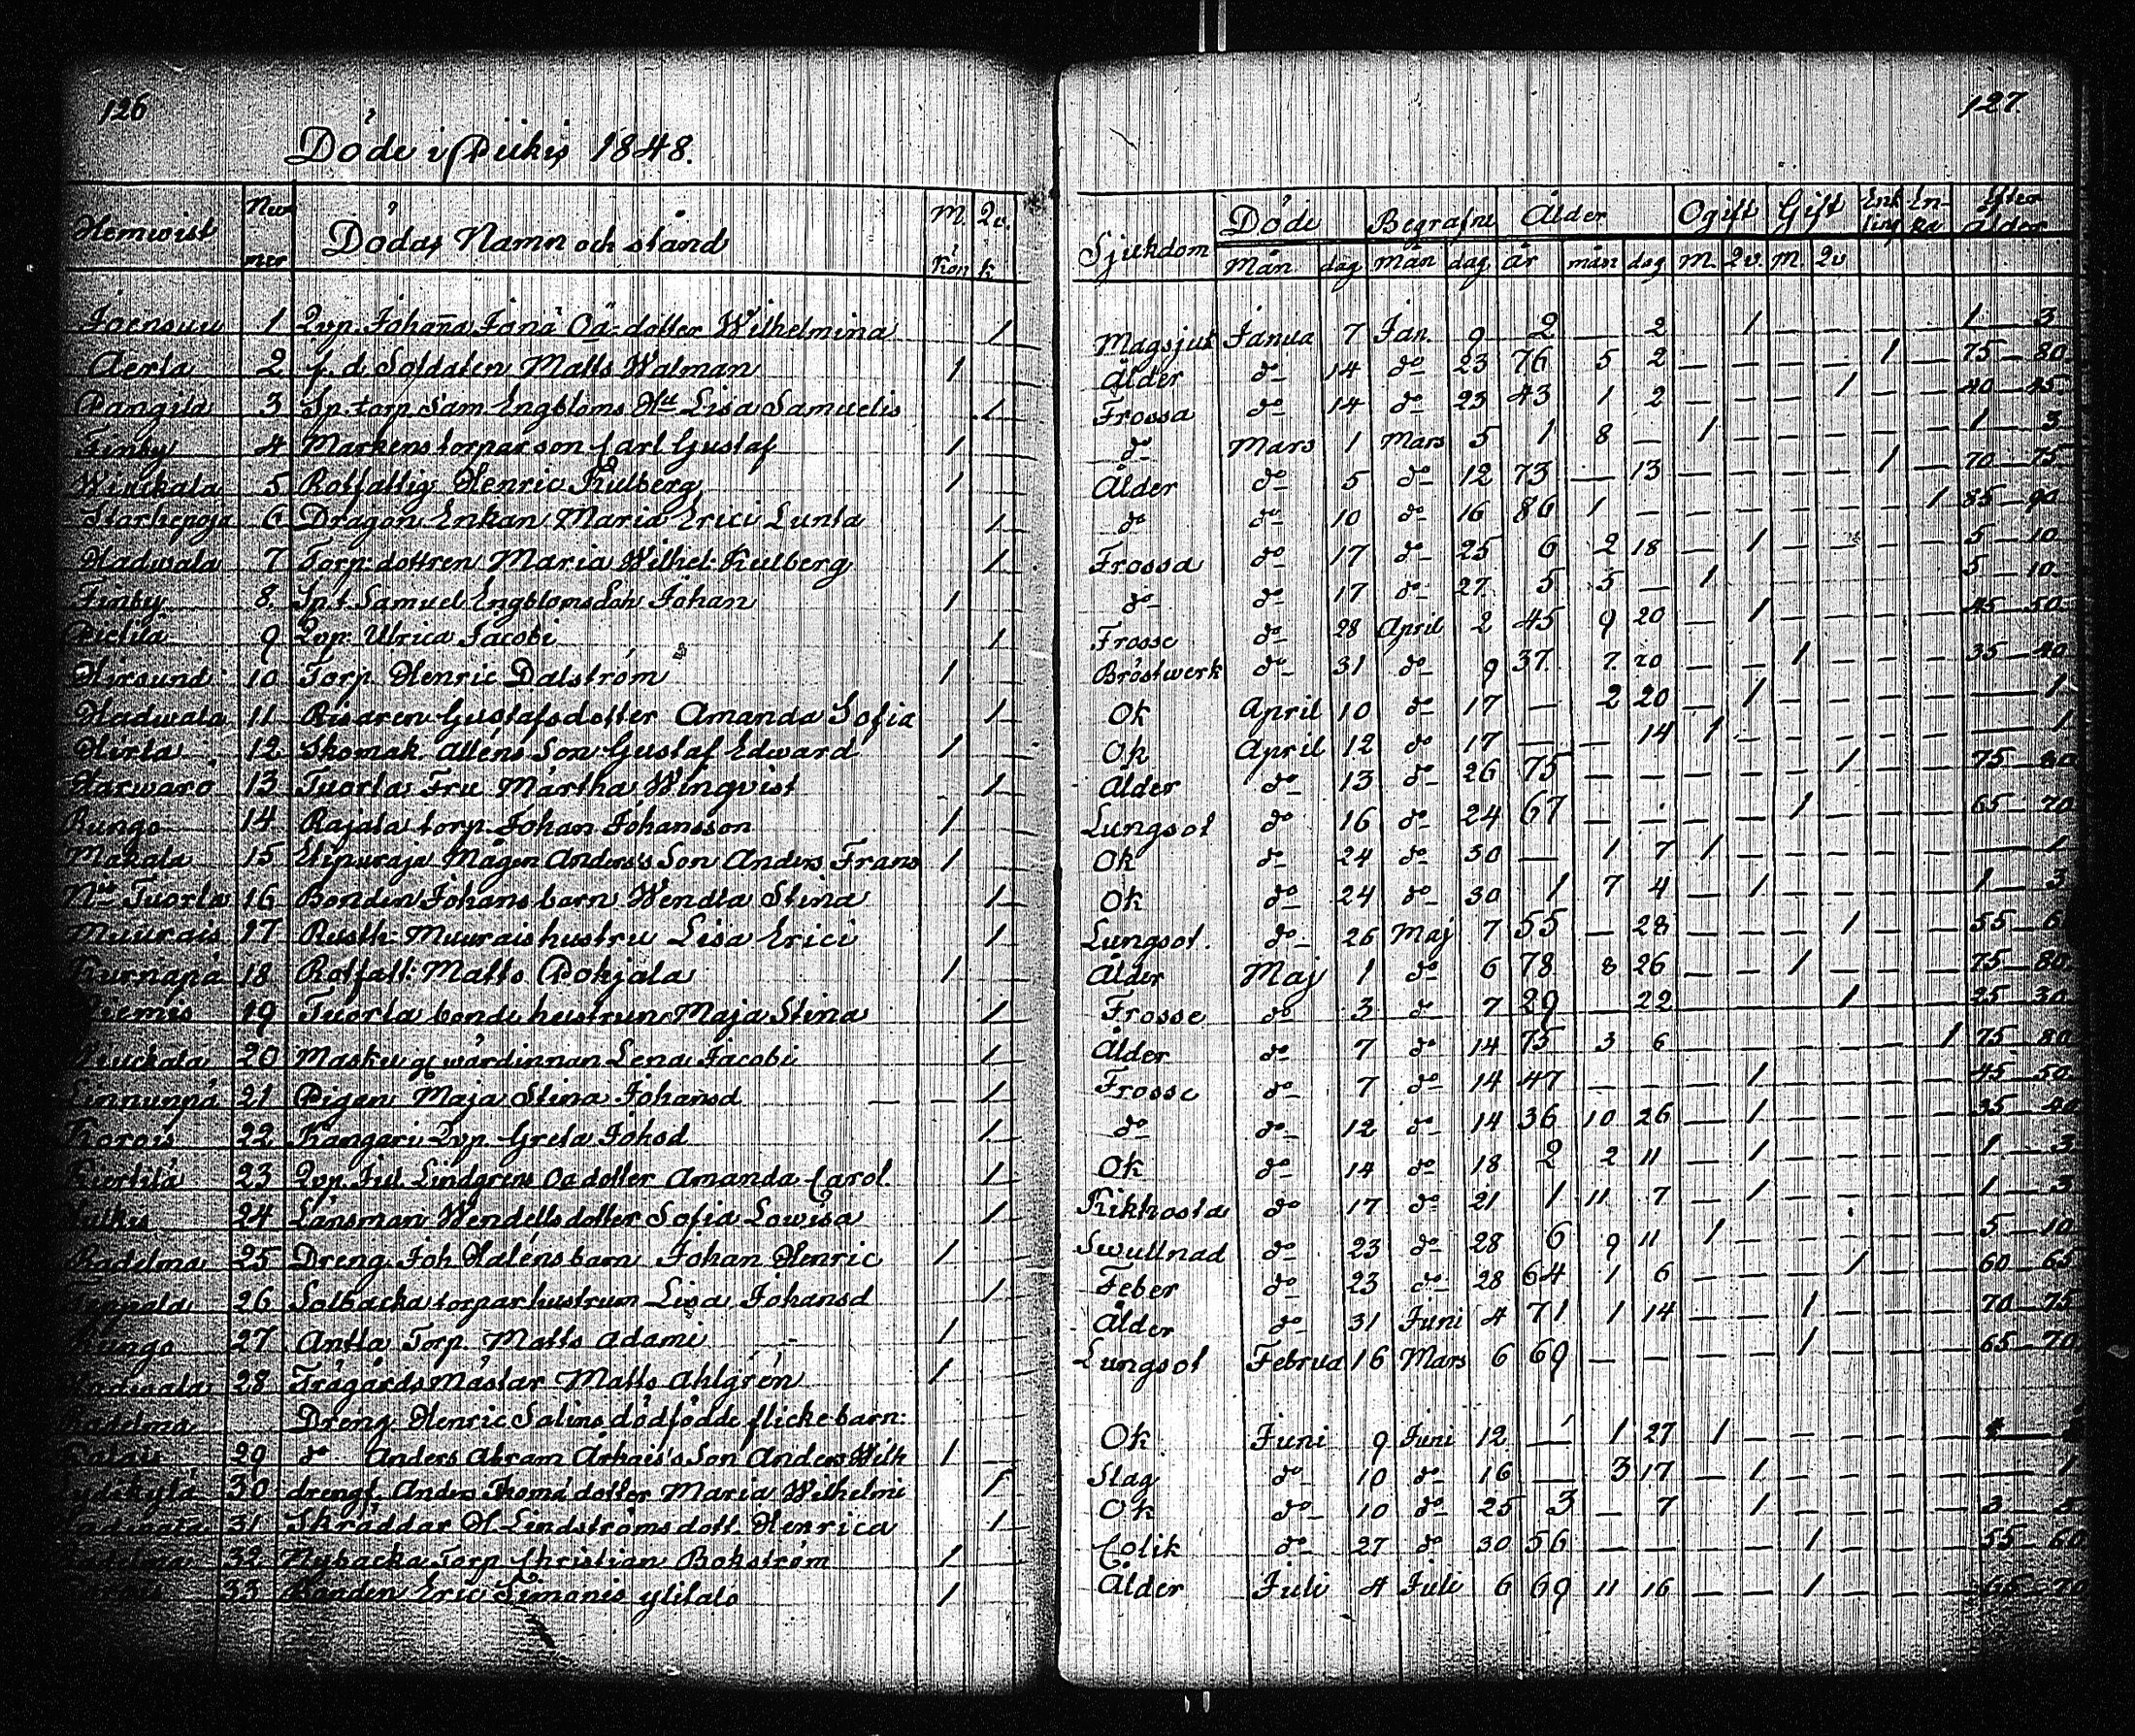 126
Döde i Piikis 1848.
Hemwist Num mer Dödas Namn och stånd M. kön Qv. k
Joensuu 1 Qvp. Johanna Jona Oä dotter Wilhelmina 1
Aerla 2 f. d. Soldaten Matts Walman 1
Pangila 3 Sp torp Sam Engbloms Hu Lisa Samuelis 1
Finby 4 Markens torpar son Carl Gustaf 1
Winikala 5 Rotfattig Henric Kulberg 1
Starkepoja 6 Dragon Enkan Maria Erici Lunta 1
Hadwala 7 Torp: dottren Maria Wilhel: Kulberg 1
Finby 8. Sp t. Samuel Engbloms Son Johan 1
Pietilä 9 Qvp. Ulrica Jacobi 1
Hirsund 10 Torp. Henric Dalström 1
Hadwala 11 Risaren Gustafs dotter Amanda Sofia 1
Hirla 12 Skomak. Alléns Son Gustaf Edward 1
Harwarö 13 Tuorla Fru Märtha Winqvist 1
Rungo 14 Rajala torp. Johan Johansson 1
Makala 15 Ylipuraja Mågen Anders's Son Anders Frans 1
Nä Tuorla 16 Bonden Johans barn Wendla Stina 1
Muurais 17 Rusth: Muurais hustru Lisa Erici 1
Kurnapä 18 Rotfatt: Matts Pohjala 1
19 Tuorla bonde hustrun Maja Stina 1
20 Masku gl wärdinnan Lena Jacobi 1
Linnunpä 21 Pigan Maja Stina Johansd — — 1
Korois 22 Kangari Qvp. Greta Johsd 1
Kiertilä 23 Qvp. Jul. Lindgrens oä dotter Amanda Carol. 1
24 Länsman Wendells dotter Sofia Lowisa 1
Radelma 25 Dreng Joh Haléns barn Johan Henric 1
26 Solbacka torparhustrun Lisa Johansd 1
Rungo 27 Antla Torp. Matts Adami 1
28 Trägårds Mästar Matts Ahlgrén 1
Radelma Dreng Henric Salins dödfödde flickebarn:
29 do Anders Abram Arhais's Son Anders Wilh 1
30 drengf. Anders Thomä dotter Maria Wilhelmi 1
31 Skräddar H Lindströms dott. Henrica 1
32 Nybacka Torp Christian Bokström 1
33 Bonden Eric Simonis ylitalo 1
127.
Sjukdom Döde Begrafne Ålder Ogift Gift Enk ling En- ka Efter ålder
Mån dag Mån dag år mån dag M. Qv. M. Qv
Magsjuk Janua 7 Jan. 9 2 — 2 1 — — — — 1 — 3
Ålder do 14 do 23 76 5 2 — — — — 1 — 75 — 80
Frossa do 14 do 23 43 1 2 — — — 1 — — 40 — 45
do Mars 1 Mars 5 1 8 — 1 — — — — — 1 — 3
Ålder do 5 do 12 73 — 13 — — — — 1 — 70 — 75
do do 10 do 16 86 1 — — — — — — 1 85 — 90
Frossa do 17 do 25 6 2 18 — 1 — — — — 5 — 10
do do 17 do 27 5 5 — 1 5 — 10
Frosse do 28 April 2 45 9 20 — 1 — — — — 45 — 50
Bröstwerk do 31 do 9 37 7 20 — — 1 — — — 35 — 40
Ok April 10 do 17 — 2 20 — 1 — — — — — 1
Ok April 12 do 17 — — 14 1 — — — — — — 1
Ålder do 13 do 26 75 — — — — — 1 — — 75 — 80
Lungsot do 16 do 24 67 — — — — 1 — — — 65 — 70
Ok do 24 do 30 — 1 7 1 — — — — — — 1
Ok do 24 do 30 1 7 4 — 1 — — — — 1 — 3
Lungsot. do 26 Maj 7 55 — 28 — — — 1 — — 55 — 6
Ålder Maj 1 do 6 78 8 26 — — 1 — — — 75 — 80
Frosse do 3 do 7 29 — 22 — — — 1 — — 25 — 30
Ålder do 7 do 14 75 3 6 — — — — — 1 75 — 80
Frosse do 7 do 14 47 — — — 1 — — — — 45 — 50
do do 12 do 14 36 10 26 — 1 — — — — 35 — 40
Ok do 14 do 18 2 2 11 — 1 — — — — 1 — 3
Kikhosta do 17 do 21 1 11 7 — 1 — — — — 1 — 3
Swullnad do 23 do 28 6 9 11 1 — — — — — 5 — 10
Feber do 23 do 28 64 1 6 — — — 1 — — 60 — 65
Ålder do 31 Juni 4 71 1 14 — — 1 — — — 70 — 75
Lungsot Februa 16 Mars 6 69 — — — — 1 — — — 65 — 70
Ok Juni 9 Juni 12 — 1 27 1 — — — — —
Slag do 10 do 16 — 3 17 — 1 — — — — — 1
Ok do 10 do 25 3 — 7 1 — — — — 3 — 5
Colik do 27 do 30 56 — — — — 1 — — — 55 — 60
Ålder Juli 4 Juli 6 69 11 16 — — 1 — — — 65 — 70